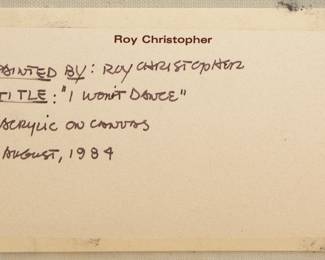 Roy Christopher
PAINTED BY: ROY CHRISTOPHER
TITLE: "I WON'T DANCE"
ACRYLIC ON CANVAS
AUGUST, 1984